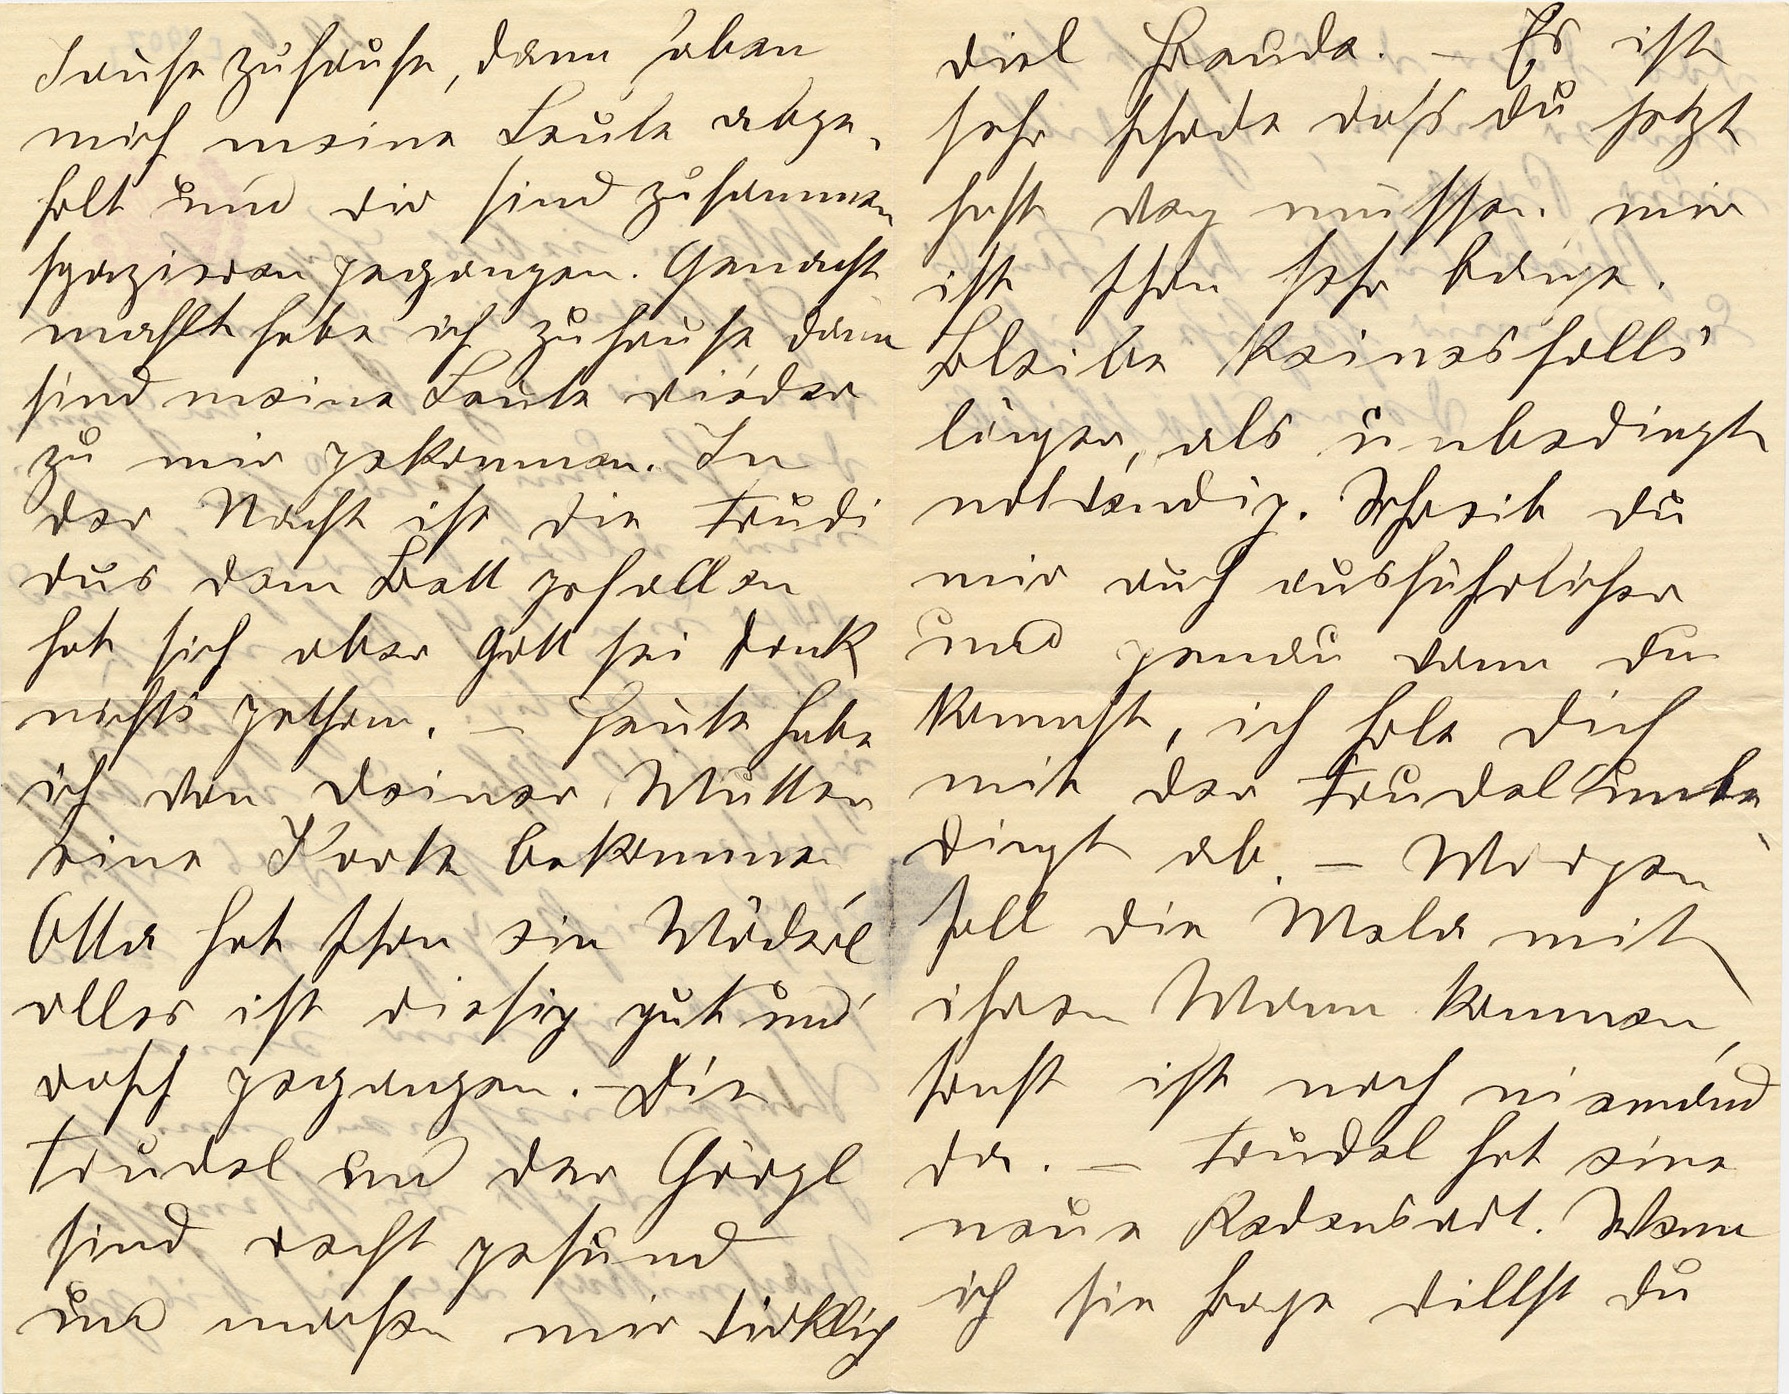 Jause zuhause, dann haben
mich meine Leute abge-
holt und wir sind zusammen
spazieren gegangen. Genacht
mahlt habe ich zuhause dann
sind meine Leute wieder
zu mir gekommen. In
der Nacht ist die Trudi
aus dem Bett gefallen
hat sich aber Gott sei dank
nichts gethan. – Heute habe
ich von deiner Mutter
eine Karte bekommen
Otta hat schon ein Mäderl
alles ist riesig gut und
rasch gegangen. – Die
Trudel und der Görgl
sind recht gesund
und machen mir wirklich
viel Freude. – Es ist
sehr schade dass du jetzt
hast weg müssen mir
ist schon sehr bange.
Bleibe keinesfalls
länger, als unbedingt
notwendig. Schreib du
mir auch ausführlicher
und genau wann du
kommst, ich hole dich
mit der Trudel unbe
dingt ab. – Morgen
soll die Mela mit
ihren Mann kommen,
sonst ist noch niemand
da. – Trudel hat eine
neue Redensart. Wenn
ich sie frage willst du